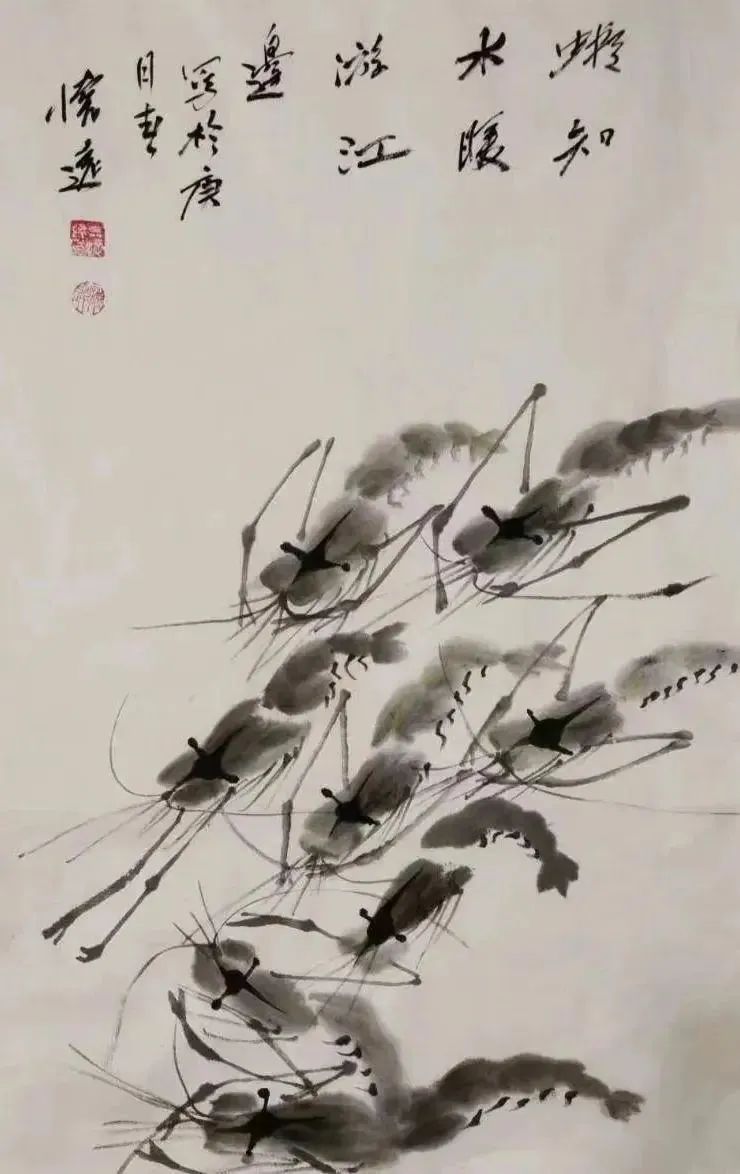 蝦知
水暖
游江
邊
寫於庚
春
懷遠